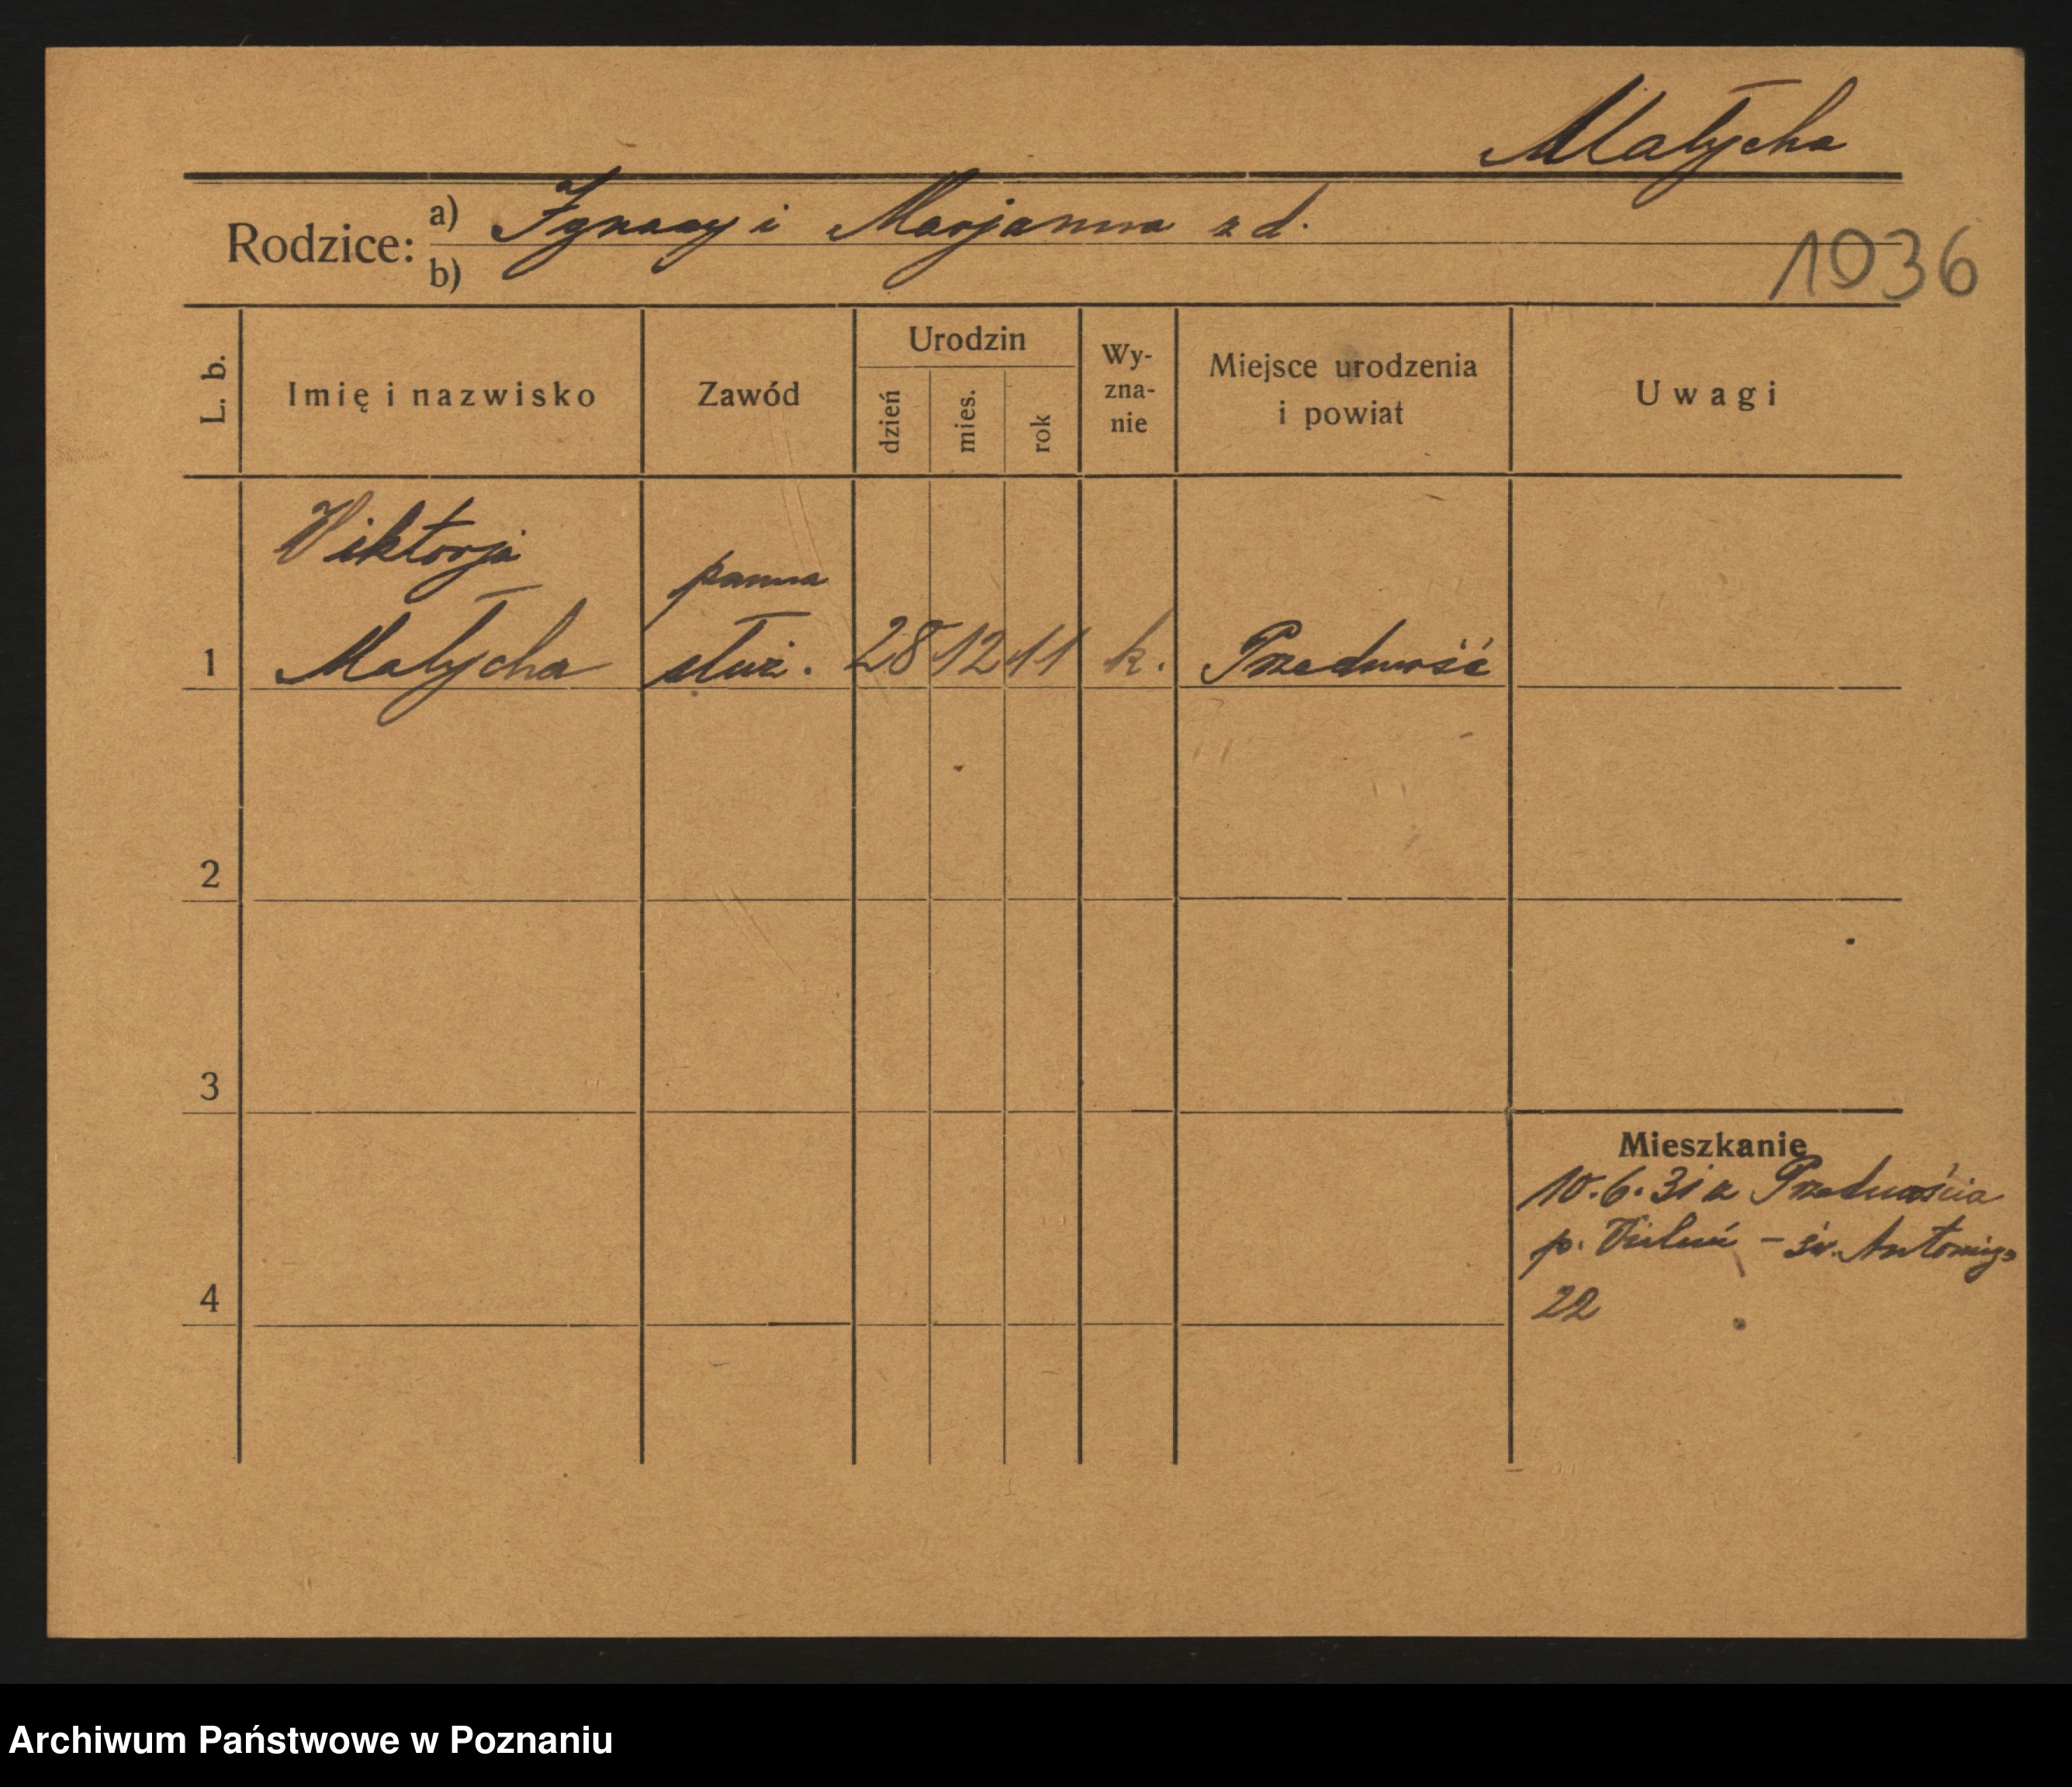 Małycha
Rodzice: a) Ignacy i Marjanna z d.
b)
1036
L. b.
Imię i nazwisko
Zawód
Urodzin
dzień
mies.
rok
Wy-
zna-
nie
Miejsce urodzenia
i powiat
Uwagi
Wiktorja
panna
1 Małycha służ. 28 12 11 k. Przedmość
2
3
Mieszkanie
10.6.31 z Przedmościa
p. Wieluń - św. Antoniego
4
22
Archiwum Państwowe w Poznaniu